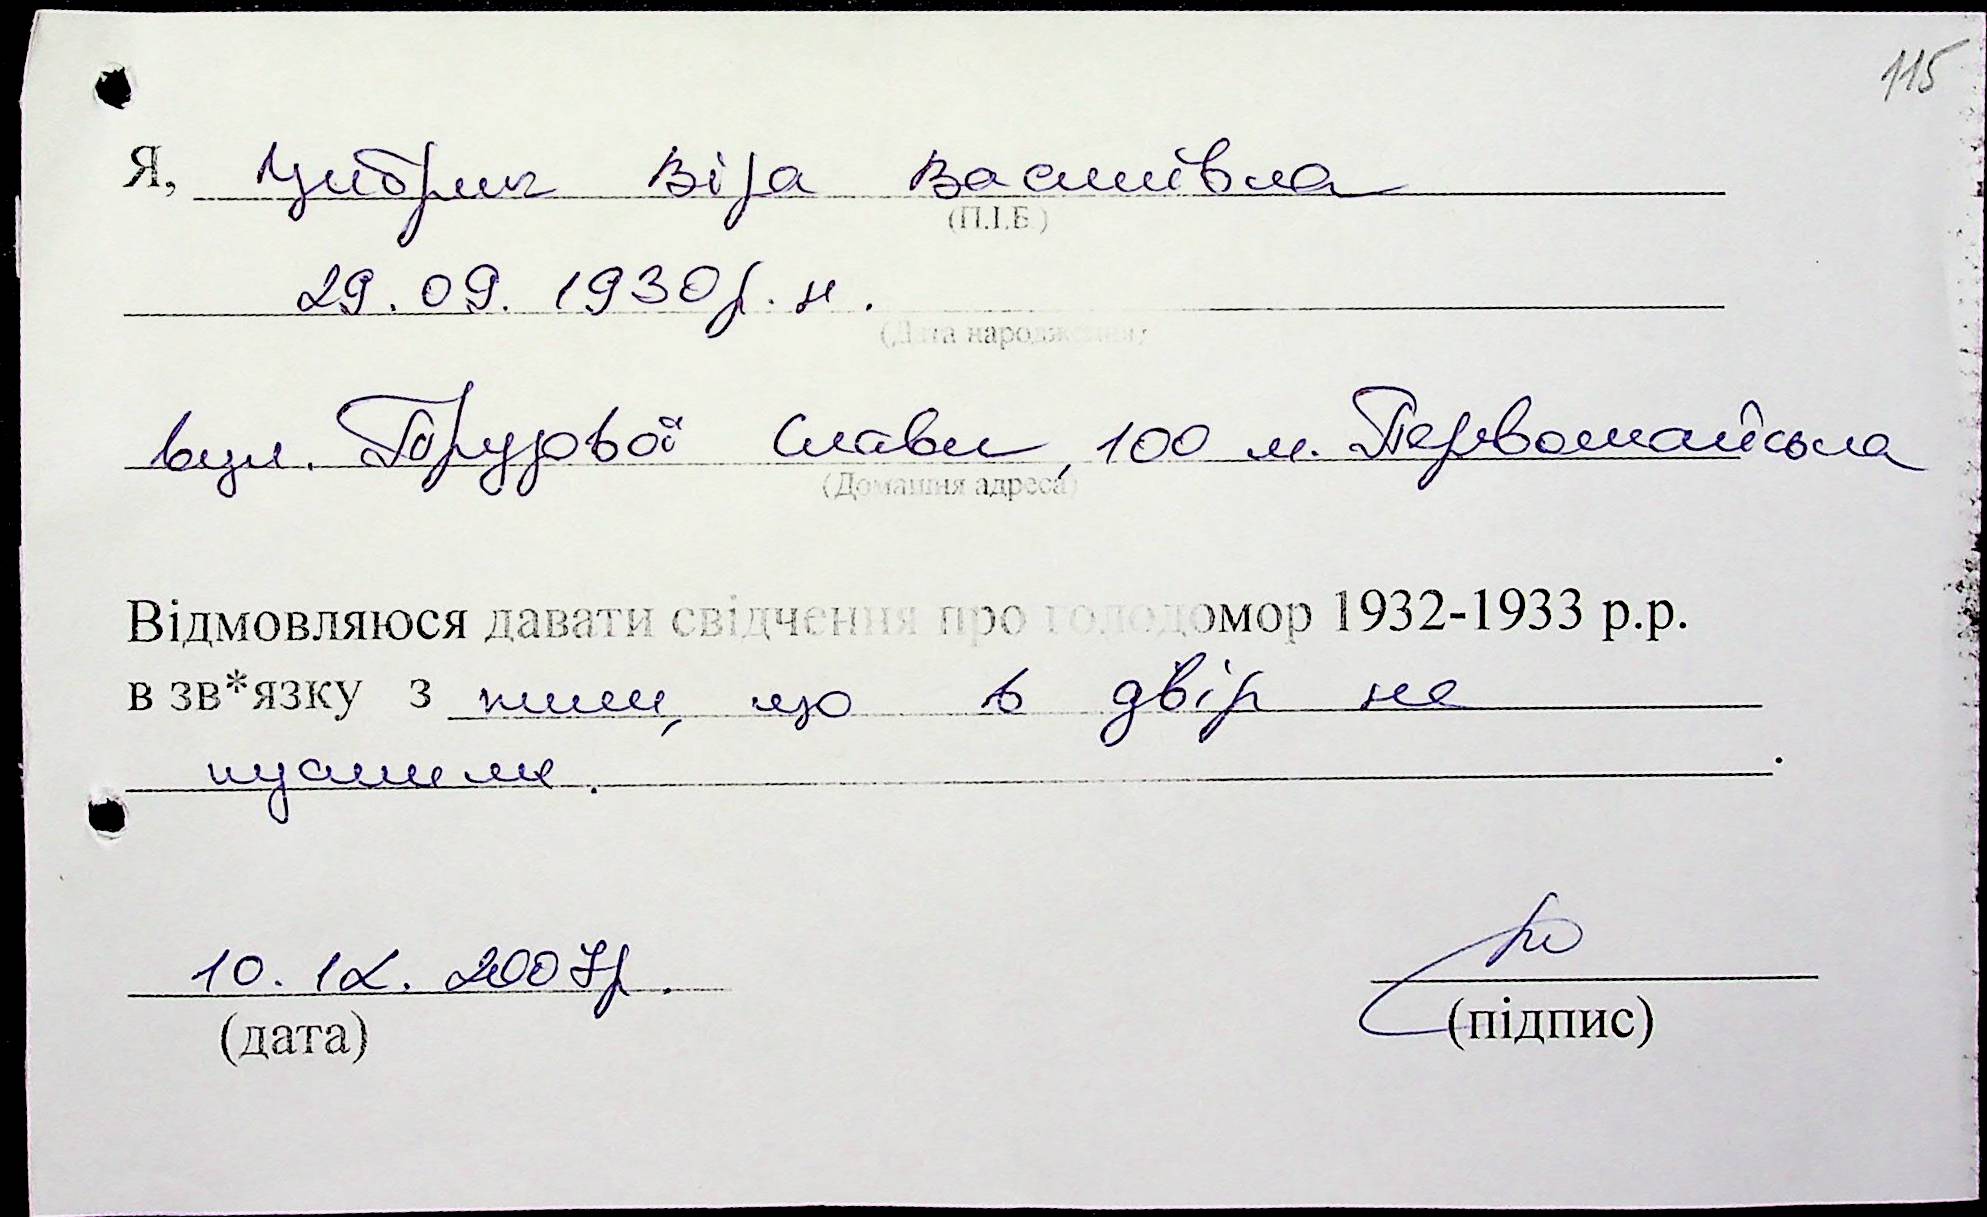 115
Я, Цибрич Віра Василівна
(П.І.Б.)
29.09.1930 р.н.
(Дата народження)
вул. Трудової Слави, 100 м. Первомайська
(Домашня адреса)
Відмовляюся давати свідчення про голодомор 1932-1933 р.р.
в зв*язку з тим, що в двір не
пустили.
10.12.2007р.
(дата)
(підпис)